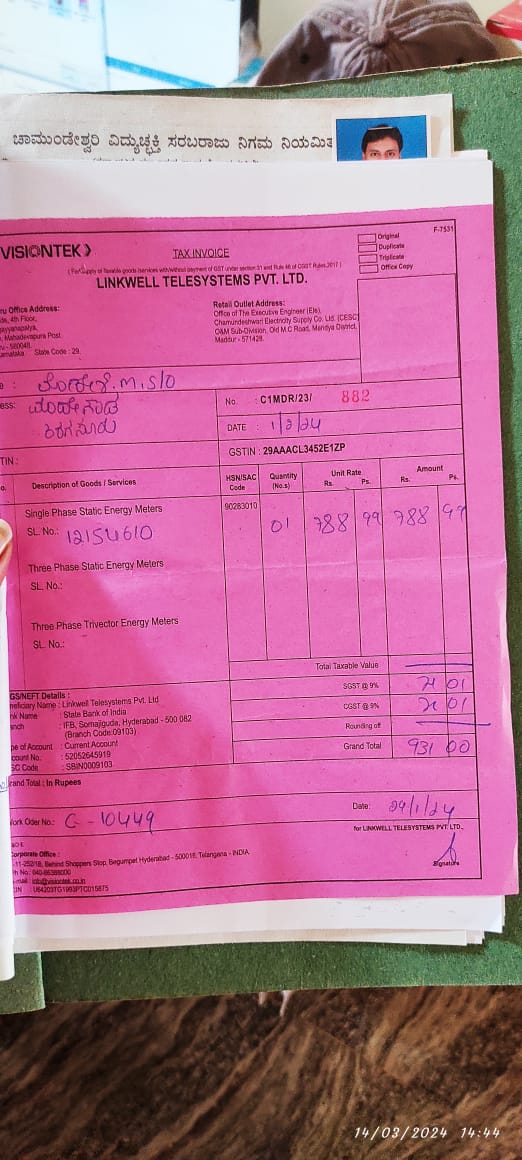 ಚಾಮುಂಡೇಶ್ವರಿ ವಿದ್ಯುಚ್ಛಕ್ತಿ ಸರಬರಾಜು ನಿಗಮ ನಿಯಮಿತ
F-7531
VISIONTEK
TAX INVOICE
Original
Duplicate
Triplicate
Office Copy
(For Supply of Taxable goods /services with/without payment of GST under section 31 and Rule 46 of CGST Rules,2017 )
LINKWELL TELESYSTEMS PVT. LTD.
ru Office Address:
de, 4th Floor,
ayyanapalya,
, Mahadevapura Post
ru - 560048.
arnataka State Code : 29.
Retail Outlet Address:
Office of The Executive Engineer (Ele),
Chamundeshwari Electricity Supply Co. Ltd. (CESC)
O&M Sub-Division, Old M.C Road, Mandya District,
Maddur - 571428.
M. S/O
ess: ಮಾದೇಗೌಡ
No. : C1MDR/23/ 882
DATE : 1/2/24
TIN :
GSTIN : 29AAACL3452E1ZP
o. Description of Goods / Services HSN/SAC Code Quantity (No.s) Unit Rate Rs. Ps. Amount Rs. Ps.
Single Phase Static Energy Meters 90283010 01 788 99 788 99
SL. No.: 12154610
Three Phase Static Energy Meters
SL. No.:
Three Phase Trivector Energy Meters
SL. No.:
Total Taxable Value
SGST @ 9% 71 01
CGST @ 9% 71 01
Rounding off
Grand Total 931 00
GS/NEFT Details :
neficiary Name : Linkwell Telesystems Pvt. Ltd
nk Name : State Bank of India
anch : IFB, Somajiguda, Hyderabad - 500 082
(Branch Code:09103)
pe of Account : Current Account
count No. : 52052645919
SC Code : SBIN0009103
rand Total : In Rupees
Work Oder No.: G - 10449
Date: 29/1/24
for LINKWELL TELESYSTEMS PVT. LTD.,
Signature
orporate Office :
11-252/1B, Behind Shoppers Stop, Begumpet Hyderabad - 500016. Telangana - INDIA.
h No.: 040-66388000
-mail : info@visiontek.co.in
CIN : U64203TG1993PTC015875
14/03/2024 14:44